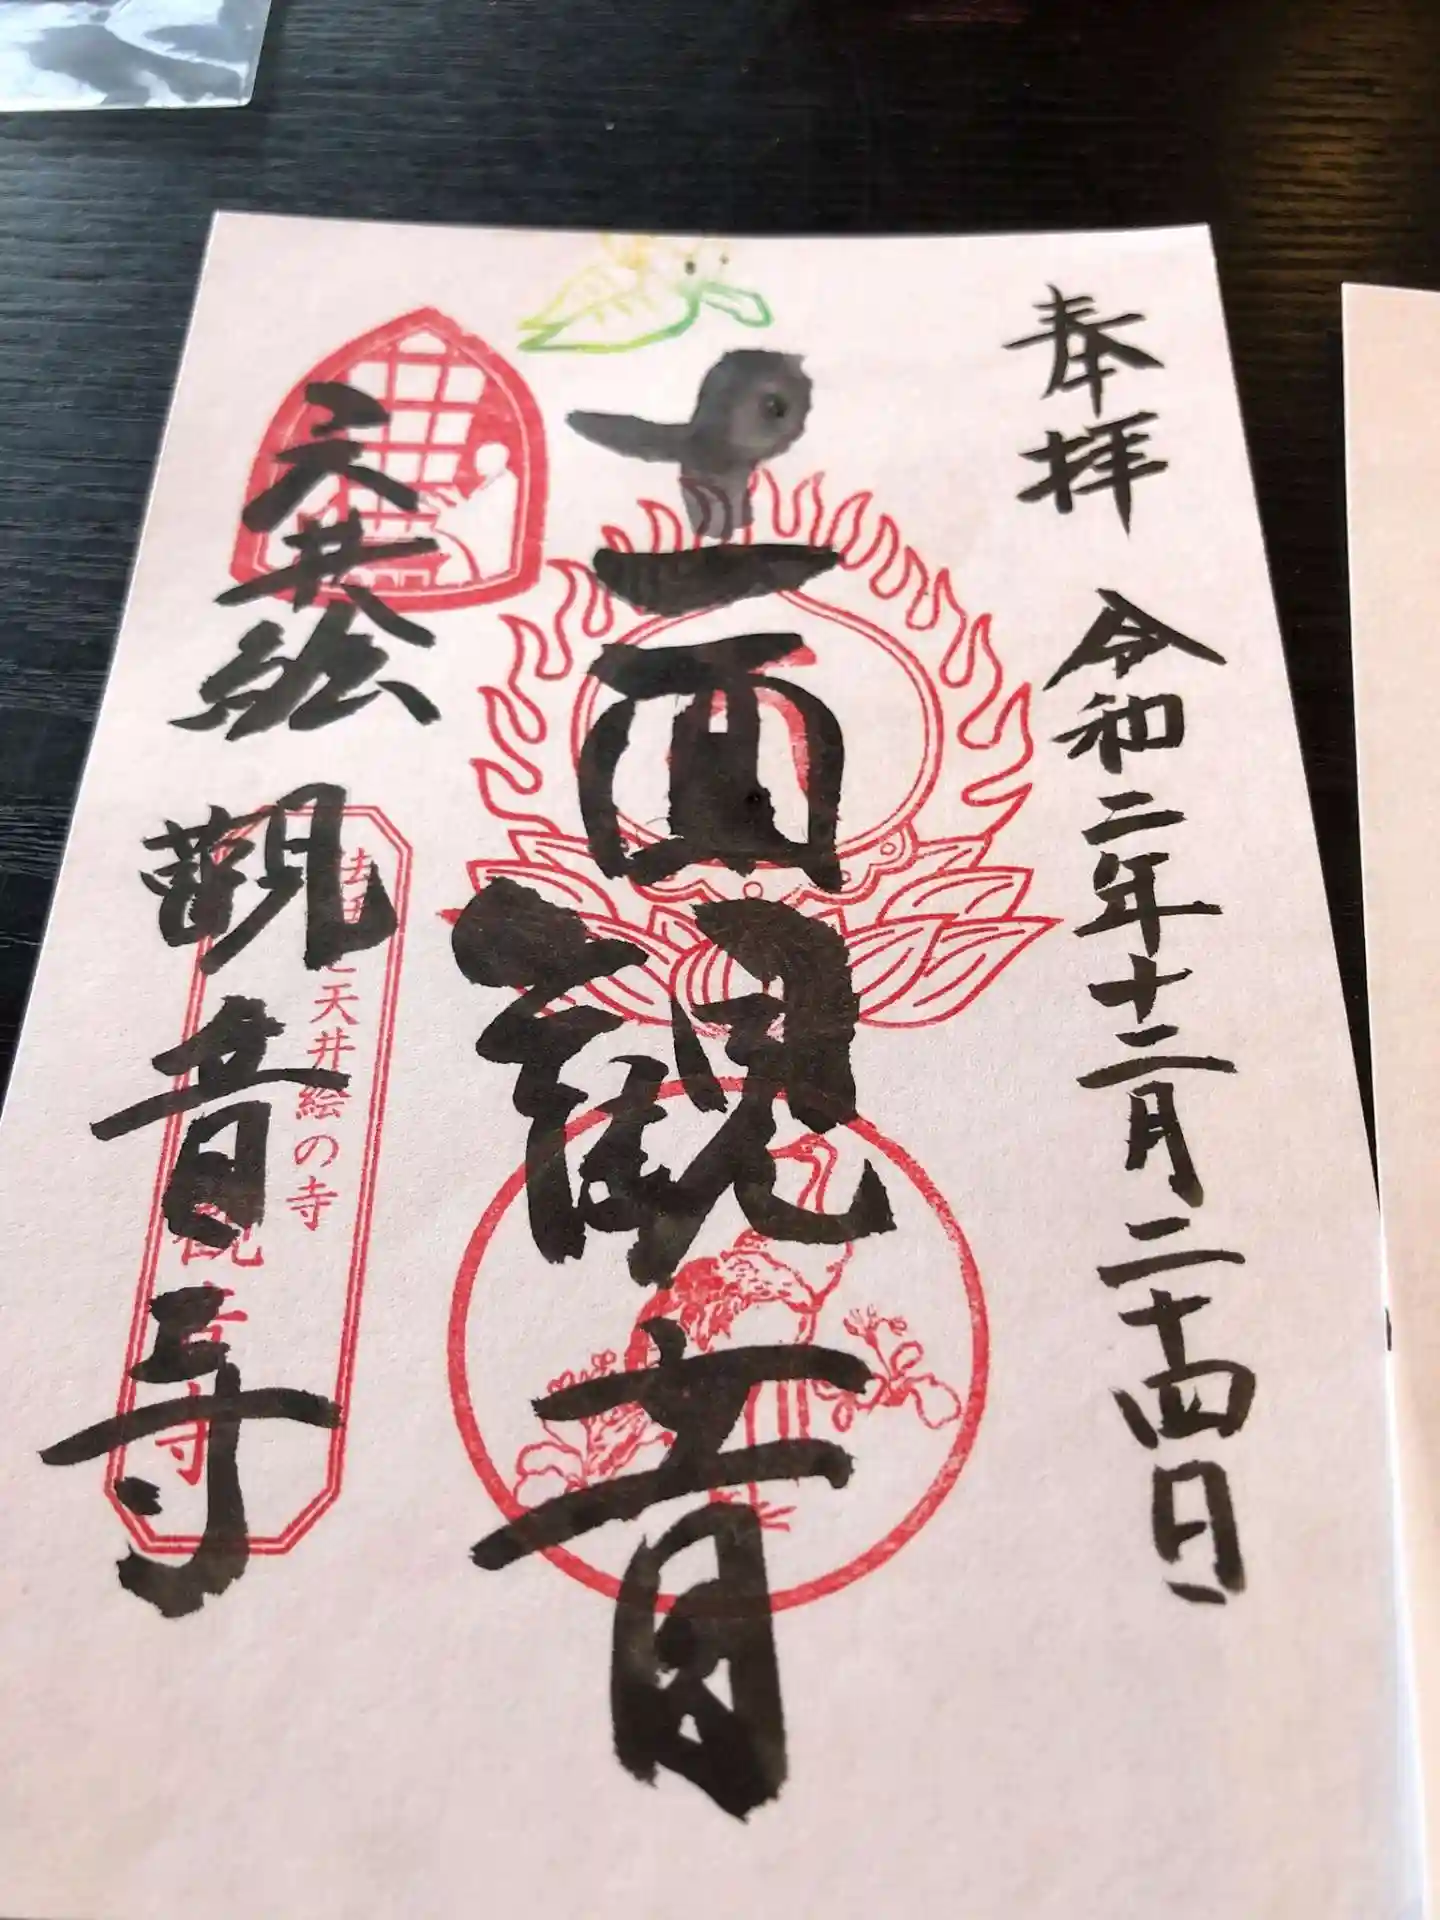 奉拝 令和二年十二月二十四日
十一面観音
天井絵 觀音寺
天井絵の寺